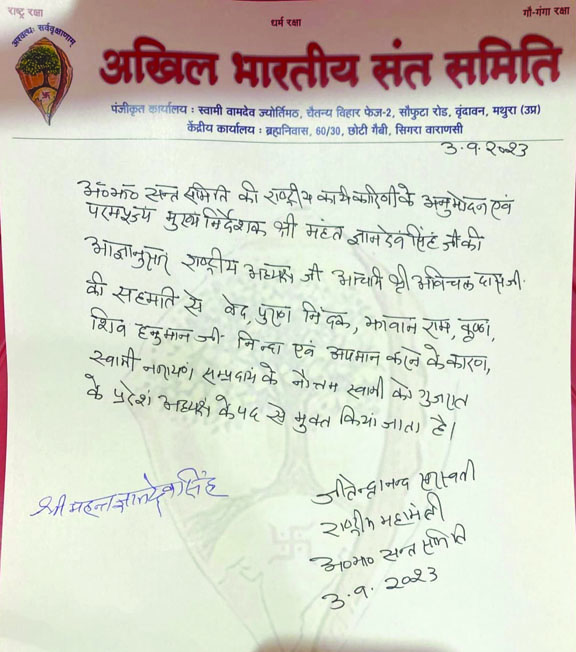 राष्ट्र रक्षा
धर्म रक्षा
गौ-गंगा रक्षा
अश्वत्थः सर्ववृक्षाणाम्
अखिल भारतीय संत समिति
पंजीकृत कार्यालय : स्वामी वामदेव ज्योर्तिमठ, चैतन्य विहार फेज-2, सौफुटा रोड, वृंदावन, मथुरा (उप्र)
केंद्रीय कार्यालय : ब्रह्मनिवास, 60/30, छोटी गैबी, सिगरा वाराणसी
३.९.२०२३
अ०भा० सन्त समिति की राष्ट्रीय कार्यकारिणी के अनुमोदन एवं
परमपूज्य मुख्य निर्देशक श्री महंत ज्ञानदेव सिंह जी की
आज्ञानुसार राष्ट्रीय अध्यक्ष जी आचार्य श्री अविचल दास जी
की सहमति से वेद, पुराण निंदक, भगवान राम, कृष्ण,
शिव हनुमान जी निन्दा एवं अपमान करने के कारण,
स्वामी नारायण सम्प्रदाय के नौत्तम स्वामी को गुजरात
के प्रदेश अध्यक्ष के पद से मुक्त किया जाता है।
श्री महन्त ज्ञानदेव सिंह
जीतेन्द्रानन्द सरस्वती
राष्ट्रीय महामंत्री
अ०भा० सन्त समिति
३.९.२०२३